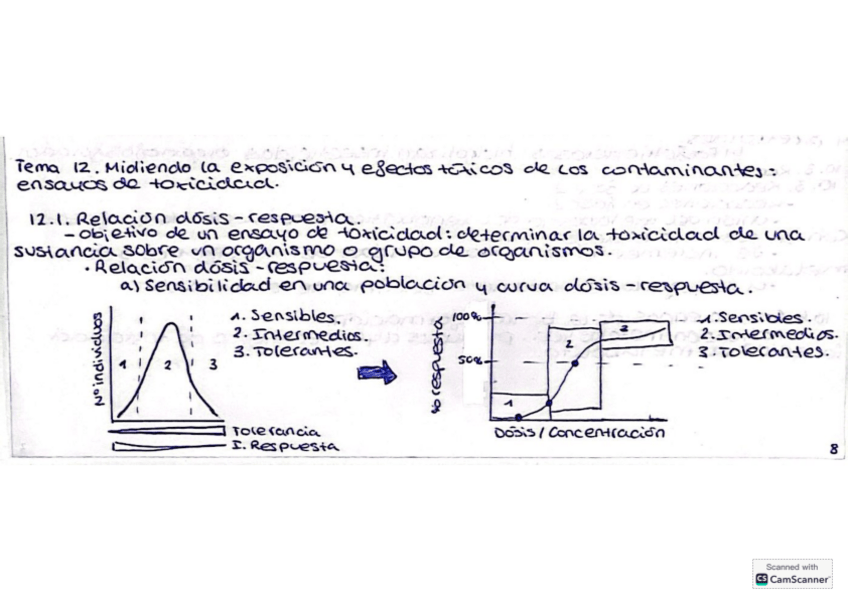 Tema 12. Midiendo la exposición y efectos tóxicos de los contaminantes:
ensayos de toxicidad.
12.1. Relación dósis-respuesta.
- objetivo de un ensayo de toxicidad: determinar la toxicidad de una
sustancia sobre un organismo o grupo de organismos.
· Relación dósis-respuesta:
a) Sensibilidad en una población y curva dósis-respuesta.
Nº individuos
1 2 3
1. Sensibles.
2. Intermedios.
3. Tolerantes.
Tolerancia
I. Respuesta
% respuesta
100%
50%
1
2
3
Dósis/Concentración
1. Sensibles.
2. Intermedios.
3. Tolerantes.
8
Scanned with
CS CamScanner